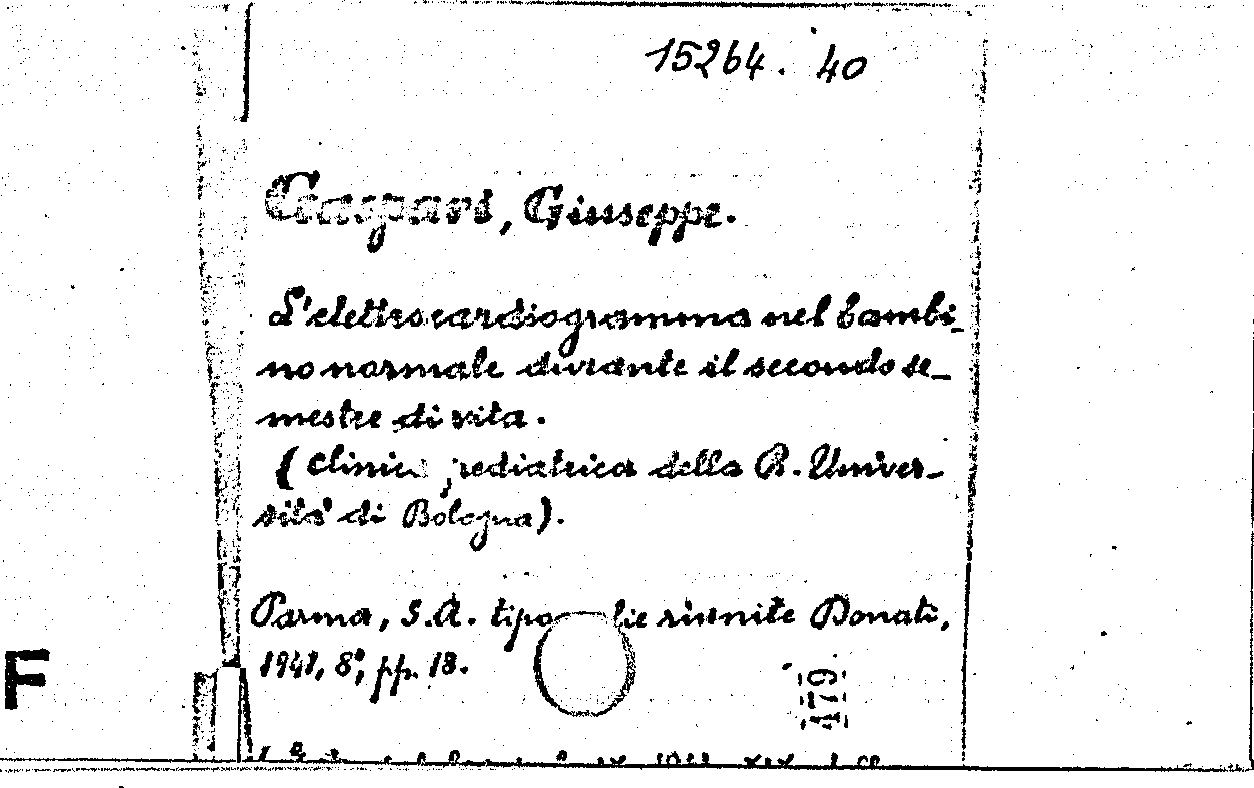 15264. 40
Gaspari, Giuseppe.
L'elettrocardiogramma nel bambi-
no normale durante il secondo se-
mestre di vita.
(Clinica pediatrica della R. Univer-
sità di Bologna).
Parma, S.A. tipo lie riunite Donati,
1941, 8°, pp. 13.
F
479